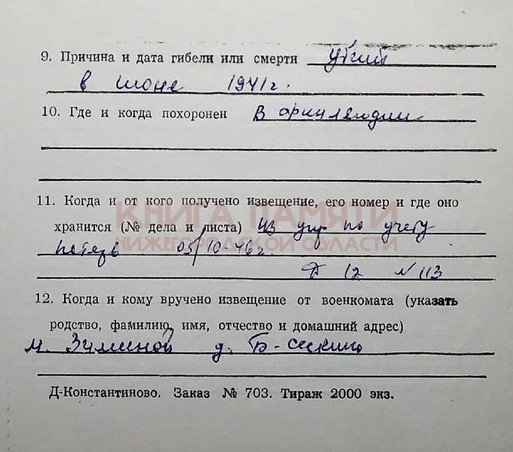 9. Причина и дата гибели или смерти убит
в июне 1941г.
10. Где и когда похоронен В Финляндии
11. Когда и от кого получено извещение, его номер и где оно
хранится (№ дела и листа) из упр по учету
потерь 05/10-46г.
Д 12 N 113
12. Когда и кому вручено извещение от военкомата (указать
родство, фамилию, имя, отчество и домашний адрес)
м. Зиминой д. Б-Сескино
Д-Константиново. Заказ № 703. Тираж 2000 экз.
КНИГА ПАМЯТИ
НИЖЕГОРОДСКОЙ ОБЛАСТИ